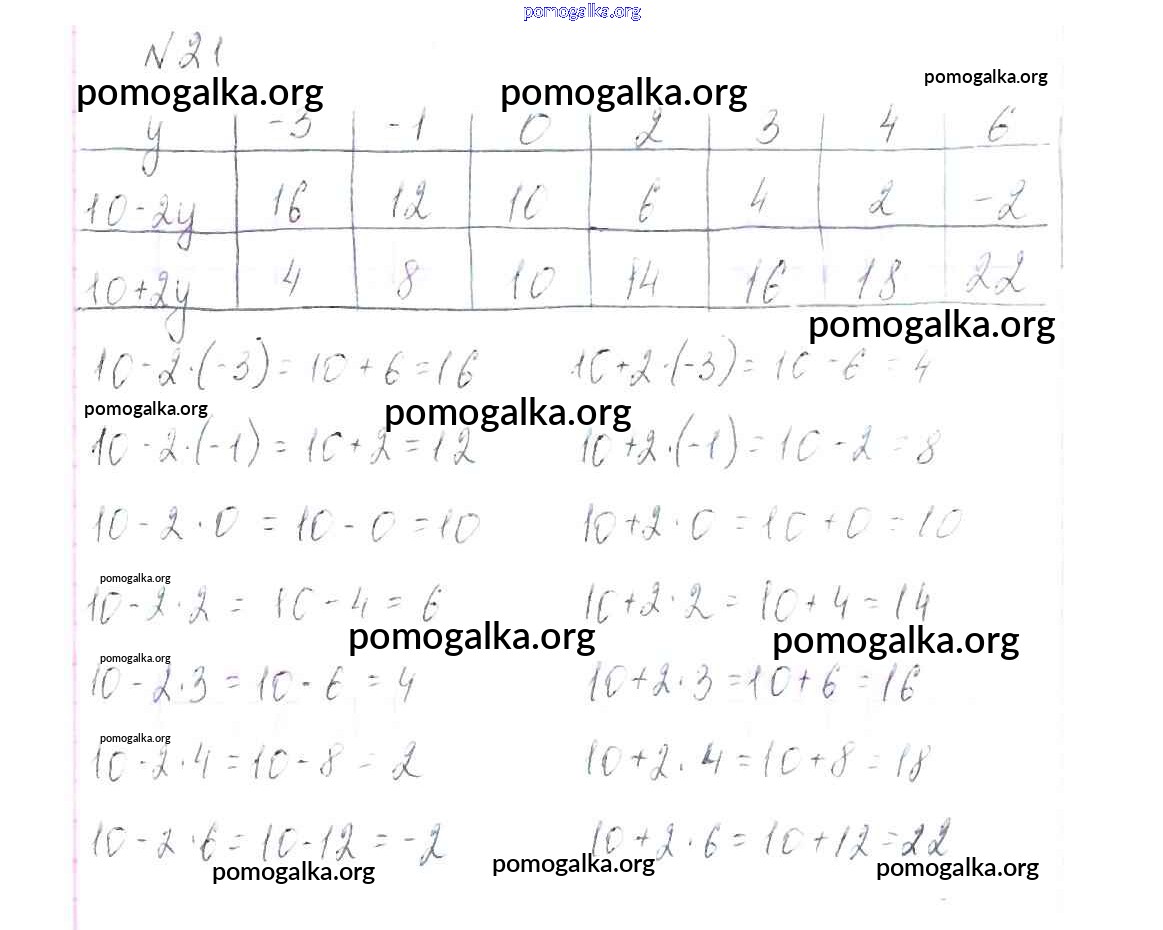 pomogalka.org
N 21
pomogalka.org pomogalka.org pomogalka.org
y -3 -1 0 2 3 4 6
10-2y 16 12 10 6 4 2 -2
10+2y 4 8 10 14 16 18 22
pomogalka.org
10 - 2·(-3) = 10 + 6 = 16 10+2·(-3) = 10 - 6 = 4
pomogalka.org pomogalka.org
10 - 2·(-1) = 10 + 2 = 12 10+2·(-1) = 10 - 2 = 8
10 - 2·0 = 10 - 0 = 10 10+2·0 = 10 + 0 = 10
pomogalka.org
10 - 2·2 = 10 - 4 = 6 10+2·2 = 10 + 4 = 14
pomogalka.org pomogalka.org
pomogalka.org
10 - 2·3 = 10 - 6 = 4 10+2·3 = 10+6 = 16
pomogalka.org
10 - 2·4 = 10 - 8 = 2 10+2·4 = 10+8 = 18
10 - 2·6 = 10 - 12 = -2 10+2·6 = 10+12 = 22
pomogalka.org pomogalka.org pomogalka.org